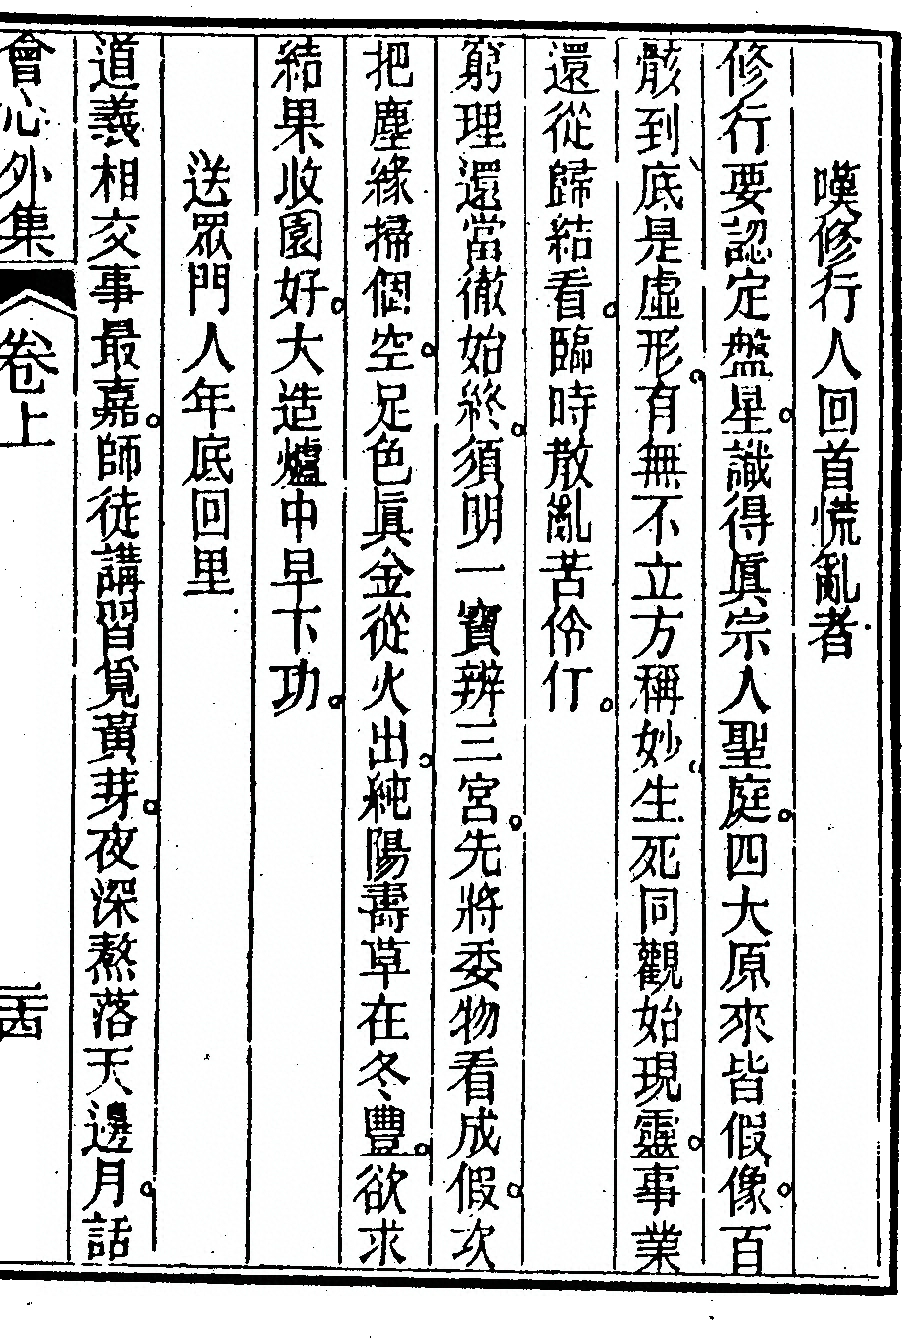 嘆修行人回首慌亂者
修行要認定盤星。識得眞宗人聖庭。四大原來皆假像。百
骸到底是虛形。有無不立方稱妙。生死同觀始現靈。事業
還從歸結看。臨時散亂苦伶仃。
窮理還當徹始終。須明一寶辨三宮。先將委物看成假。次
把塵緣掃個空。足色眞金從火出。純陽壽草在冬豐。欲求
結果收園好。大造爐中早下功。
送眾門人年底回里
道義相交事最嘉。師徒講習覓黃芽。夜深熬落天邊月。話
會心外集 卷上 二十四